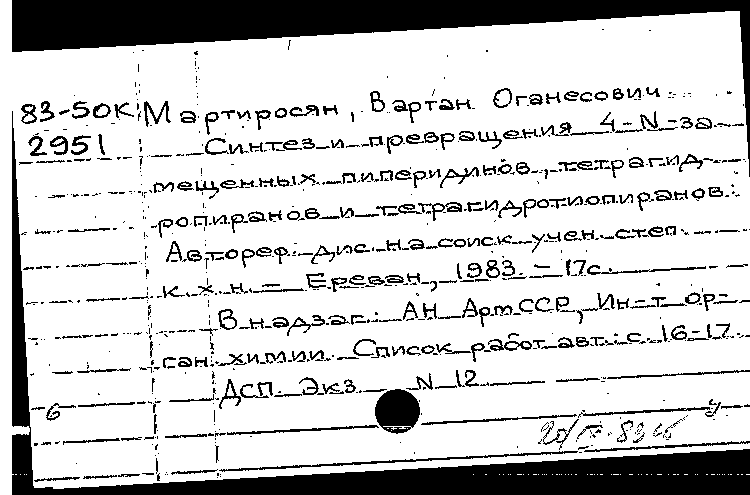 83-50К Мартиросян, Вартан Оганесович
2951 Синтез и превращения 4-N-за-
мещенных пиперидинов, тетрагид-
ропиранов и тетрагидротиопиранов:
Автореф. дис. на соиск. учен. степ.
к. х. н. - Ереван, 1983. - 17с.
В надзаг.: АН АрмССР, Ин-т ор-
ган. химии. Список работ авт.: с. 16-17
ДСП. Экз. N 12
6
20/IX-83